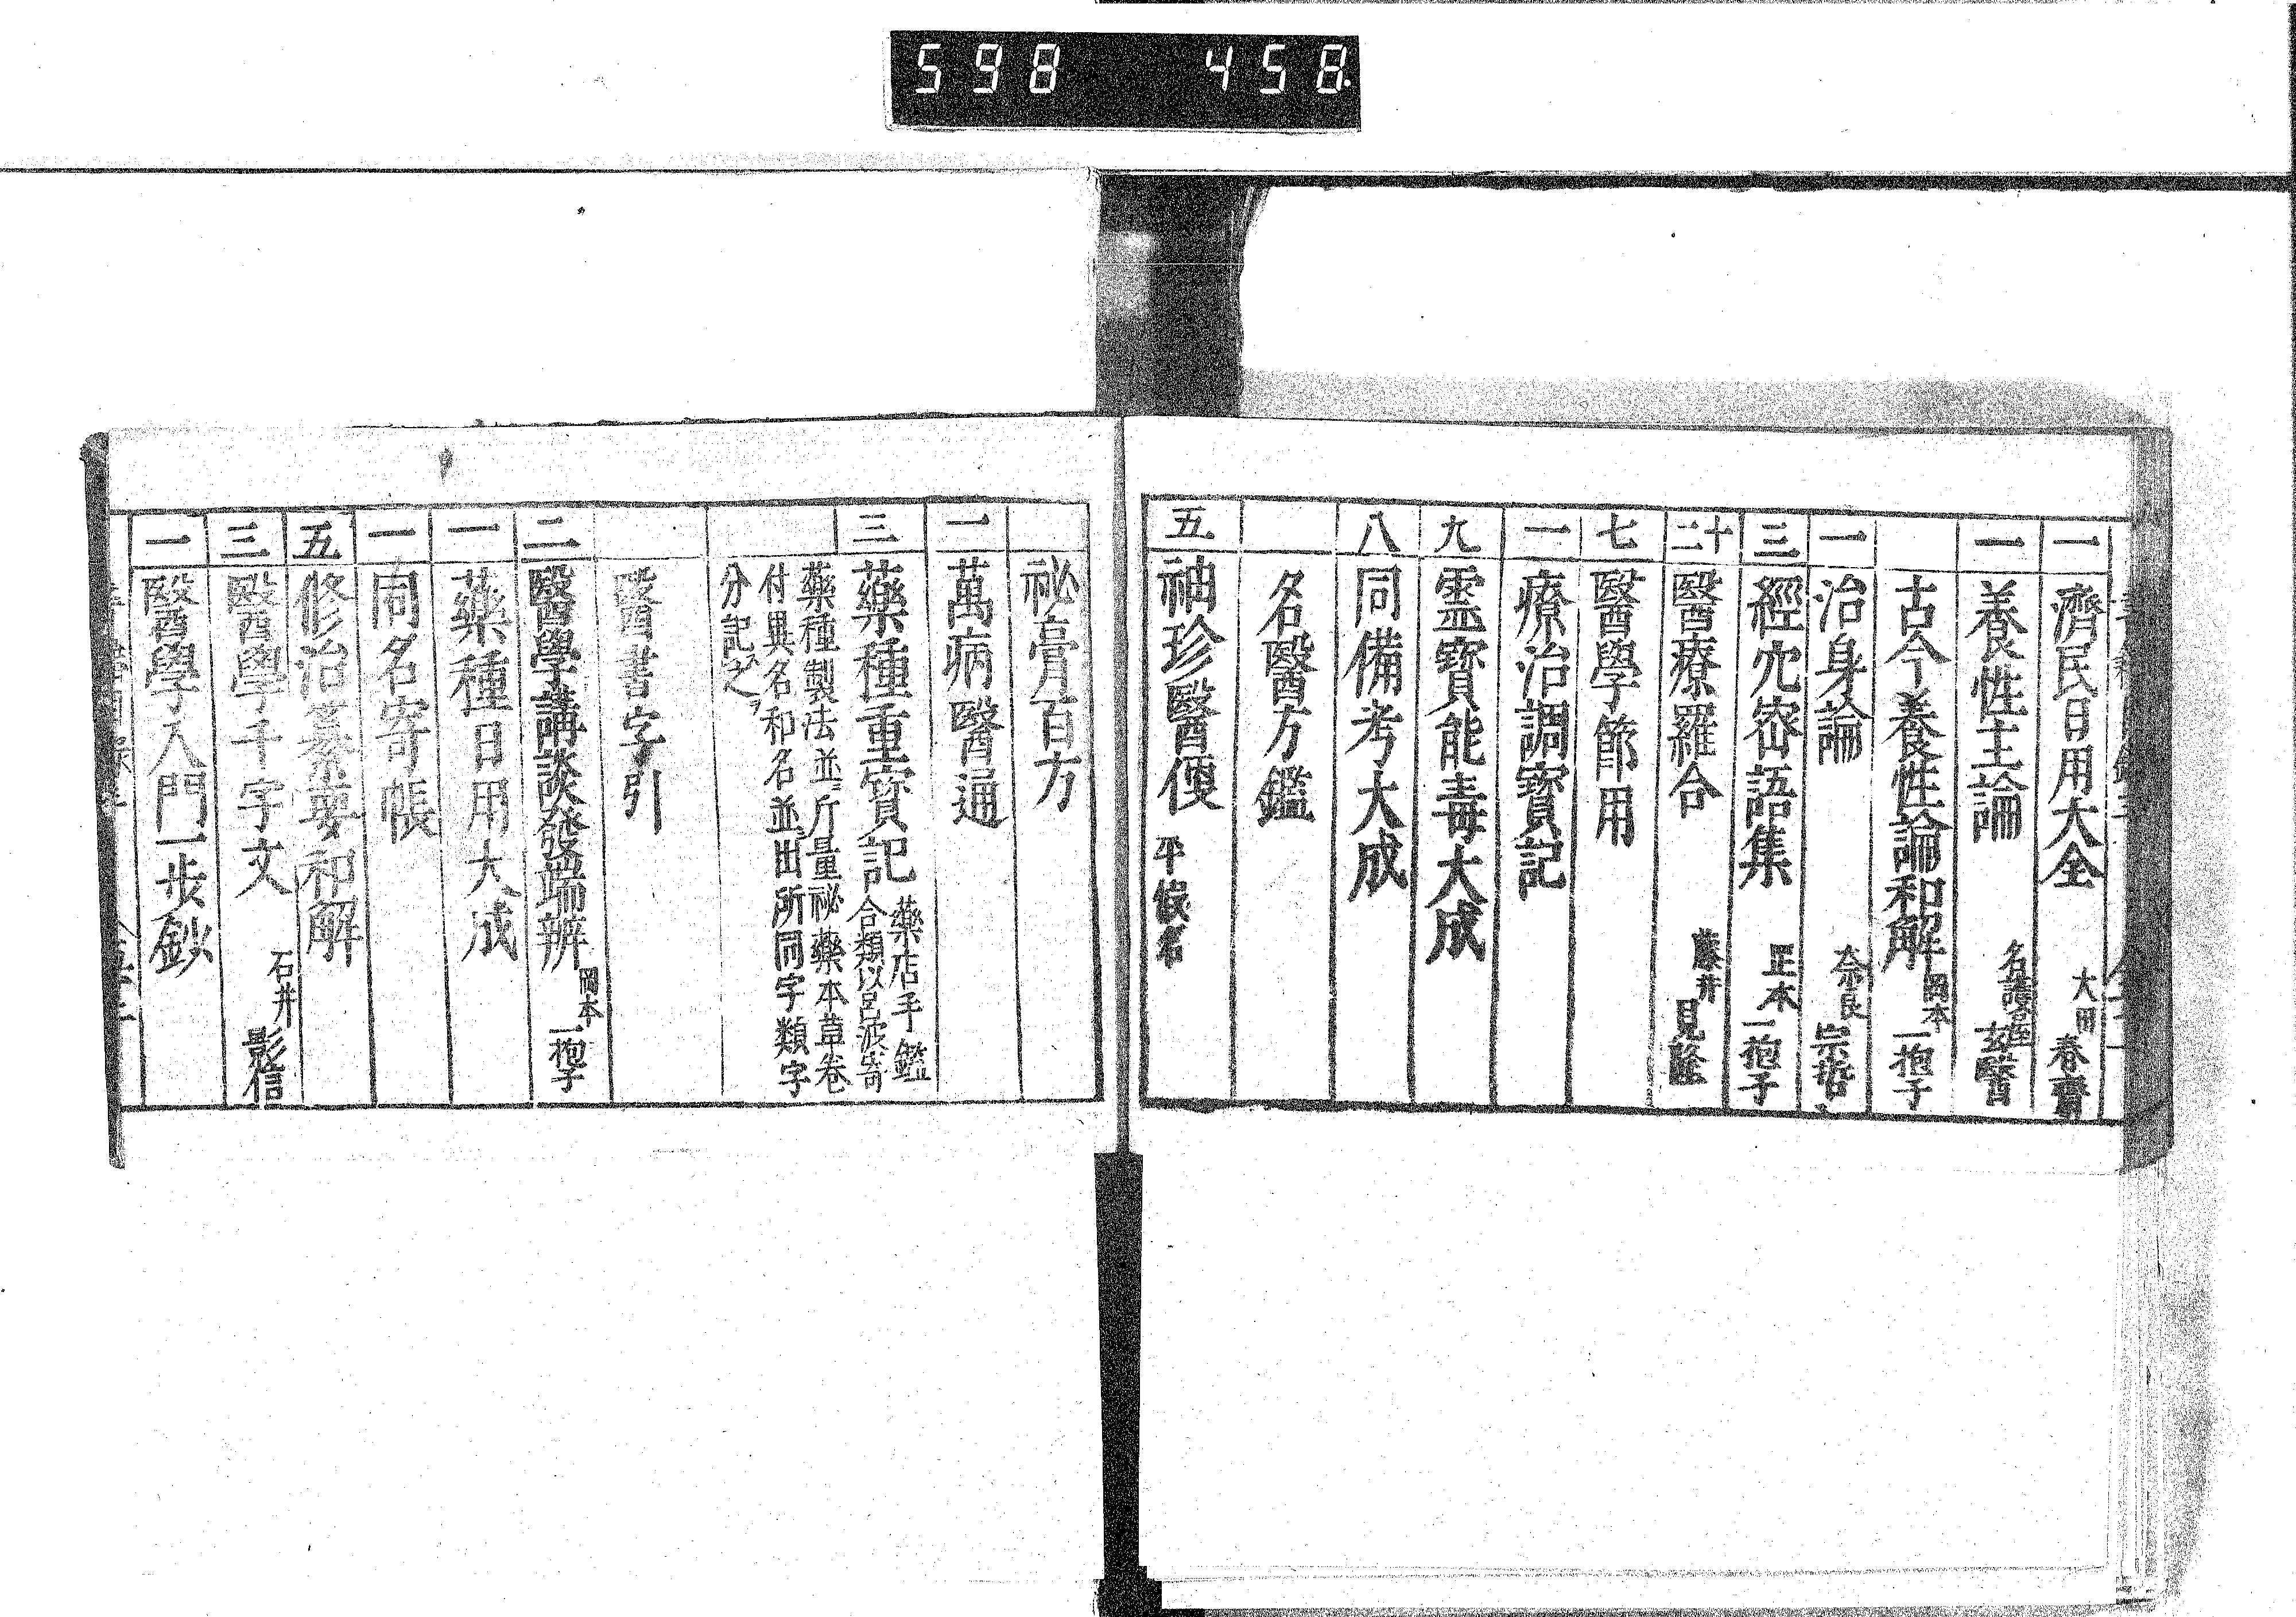 598 458
一 濟民日用大全 大田 春齋
一 養性主論 名護屋 玄醫
古今養性論和解 岡本 一抱子
一 治身論 奈良 宗哲
三 經穴密語集 正本 一抱子
十二 醫療羅合 藤井 見隆
七 醫學節用
一 療治調寶記
九 霊寶能毒大成
八 同備考大成
名醫方鑑
五 袖珍醫便 平假名
祕膏百方
一 萬病醫通
三 藥種重寶記 藥店手鑑 合類以呂波寄
藥種製法並斤量祕藥本草卷
付異名和名並出所同字類字
分記之
醫書字引
二 醫學講談發端辨 岡本 一抱子
一 藥種日用大成
一 同名寄帳
五 修治纂要和解
三 醫學千字文 石井 影信
一 醫學入門一步鈔